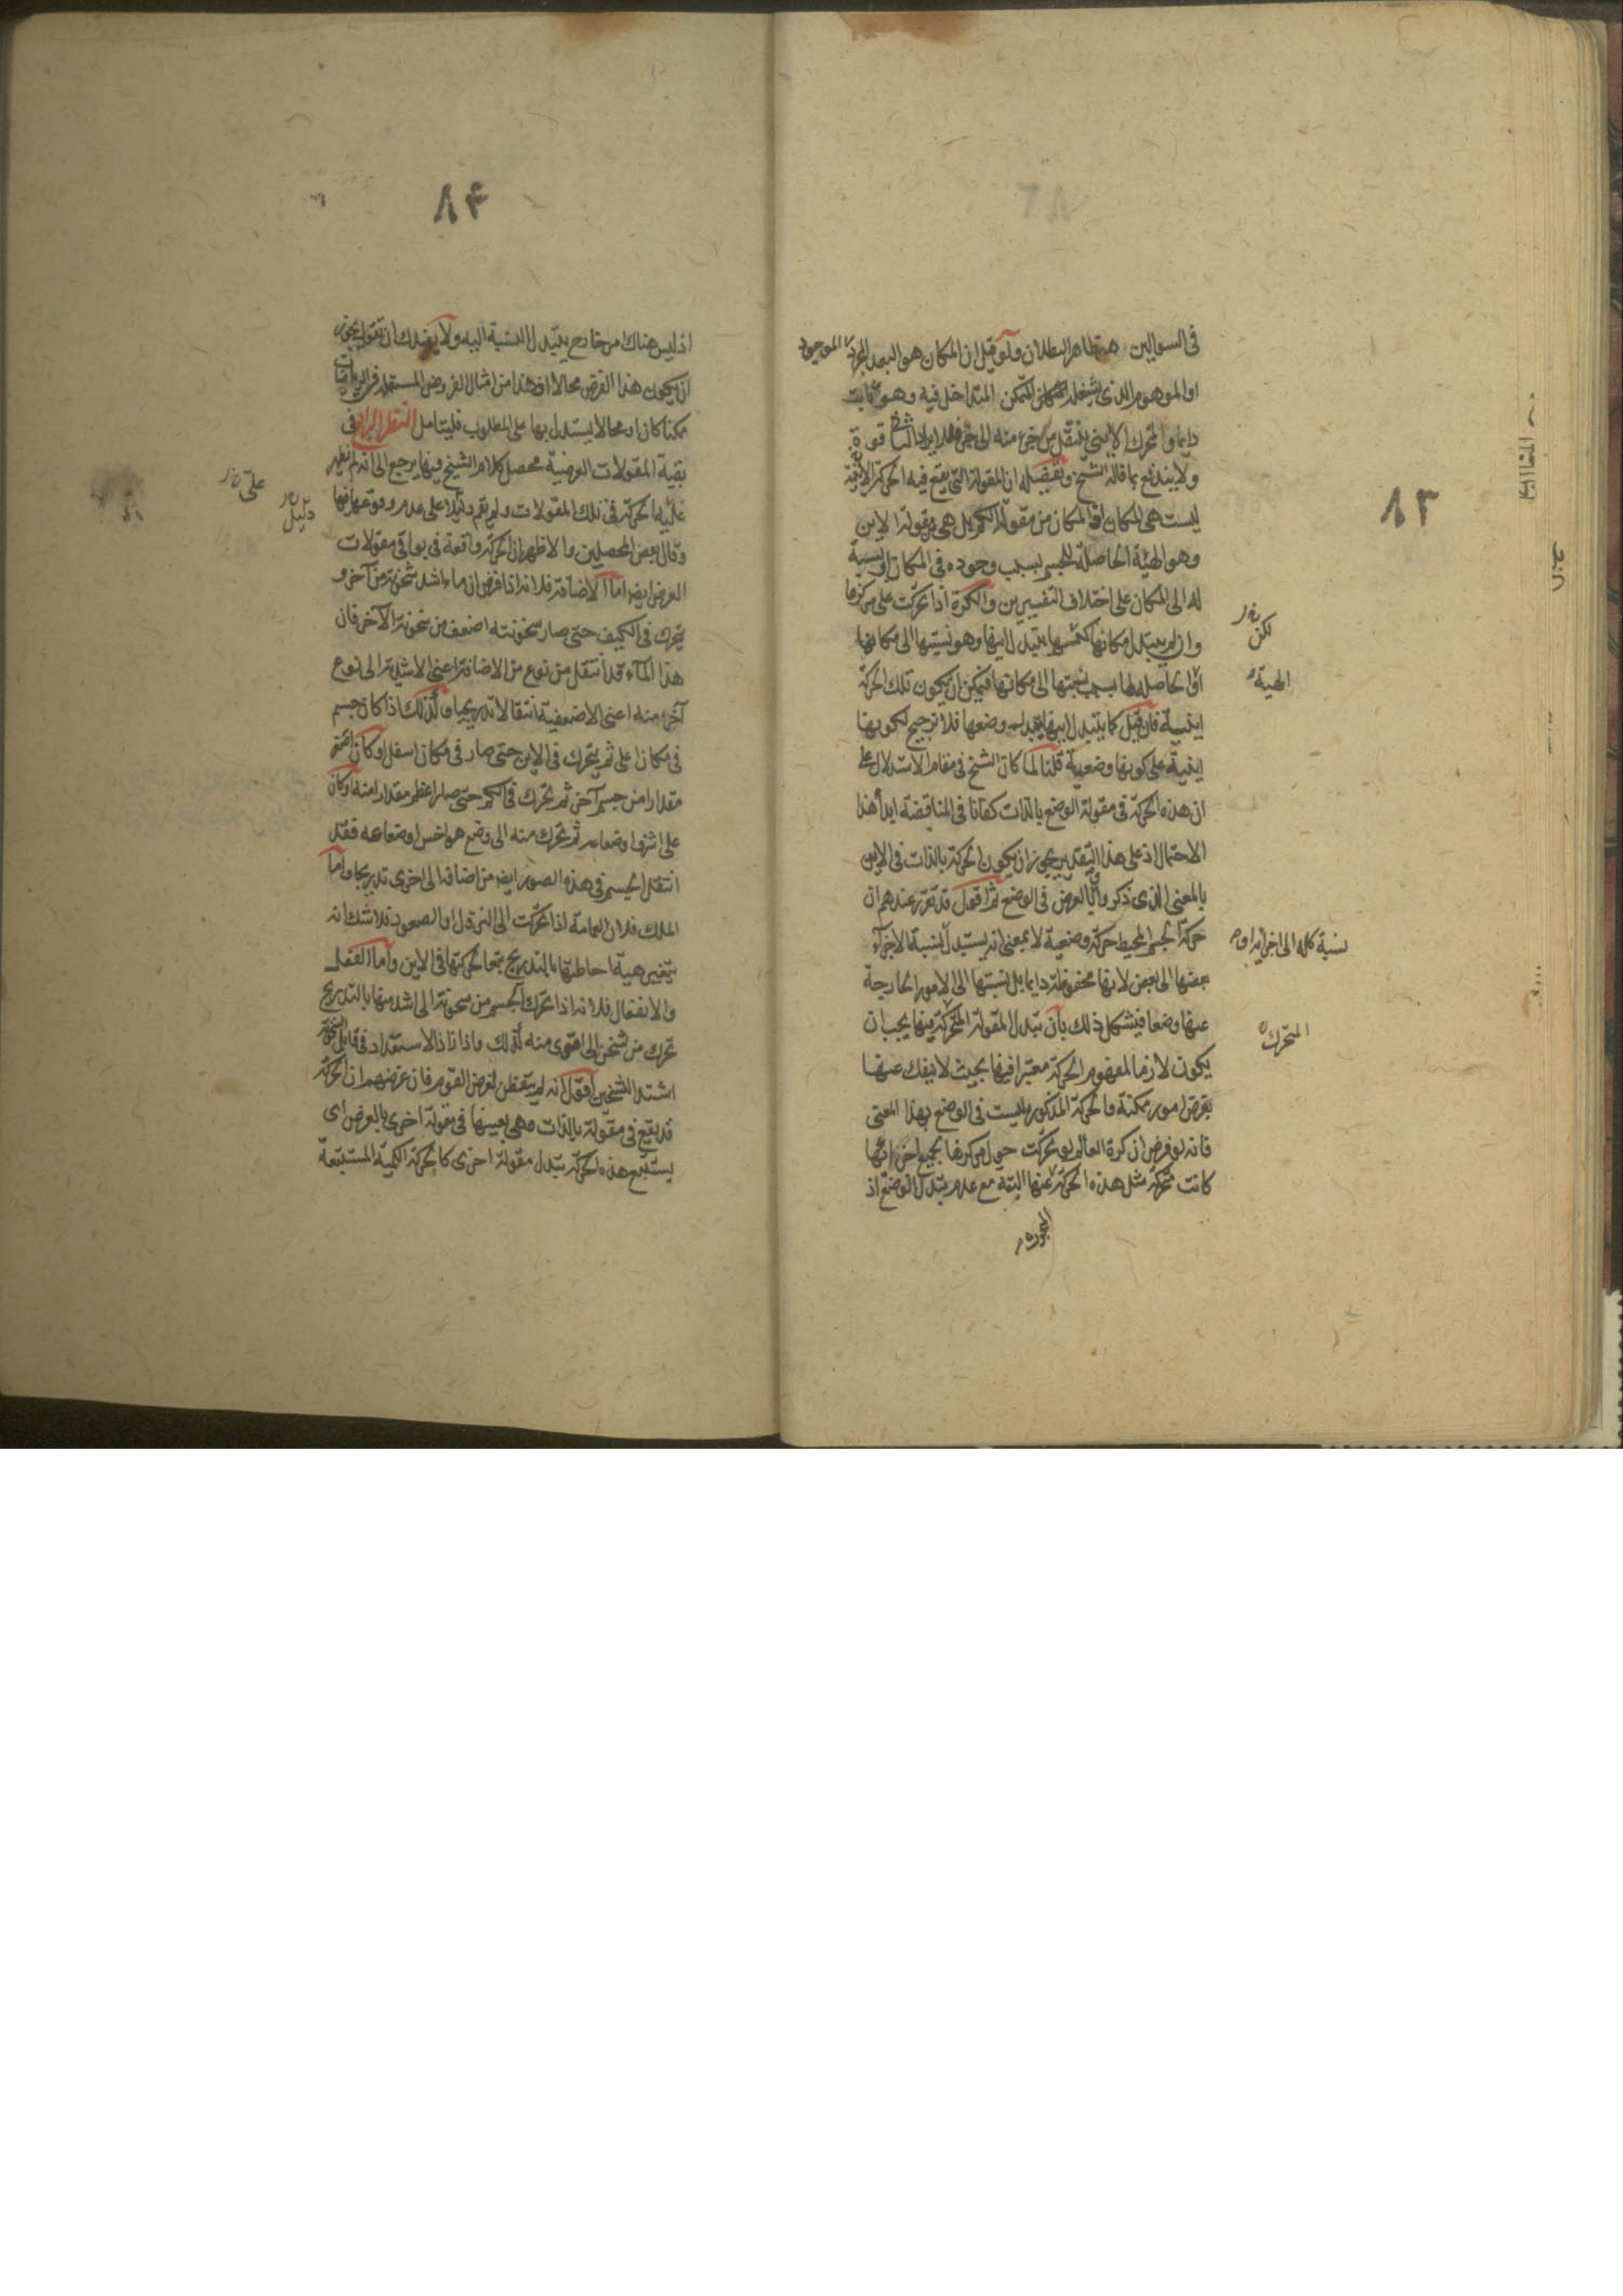 ٨٣
فى السوالين هو ظاهر البطلان ولو قيل ان المكان هو البعد المجرد الموجود
او الموهوم الذى يشغله المتمكن المتداخل فيه وهو ثابت
دايما والمتحرك الاينى ينتقل من جزء منه الى جزء فلايراد الشيخ قوة
ولا يندفع بما قاله الشيخ وتفصيله ان المقولة التى يقع فيه الحركة الاينية
ليست هى المكان اذ المكان من مقولة الكم بل هى مقولة الاين
وهو الهيئة الحاصلة للجسم بسبب وجوده فى المكان او نسبة
له الى المكان على اختلاف التفسيرين والكرة اذا تحركت على مركزها
وان لم يتبدل مكانها لكنها يتبدل اينها وهو نسبتها الى مكانها
او الحاصلة لها بسبب نسبتها الى مكانها فيمكن ان يكون تلك الحركة
اينية فان قيل كما يتبدل اينها يتبدل وضعها فلا ترجيح لكونها
اينية على كونها وضعية قلنا لما كان الشيخ فى مقام الاستدلال على
ان هذه الحركة فى مقولة الوضع بالذات كفانا فى المناقضة ابدأ هذا
الاحتمال اذ على هذا التقدير يجوز ان يكون الحركة بالذات فى الاين
بالمعنى الذى ذكر وبالعرض فى الوضع ثم اقول قد تقرر عندهم ان
حركة الجسم المحيط حركة وضعية لا بمعنى انه يستبدل نسبة الاجزاء
بعضها الى بعض لانها محفوظة دايما بل نسبتها الى الامور الخارجة
عنها وضعا فيشكل ذلك بان تبدل المقولة المتحركة فيها يجب ان
يكون لازما لمفهوم الحركة معتبرا فيها بحيث لا ينفك عنها
بفرض امور ممكنة والحركة المذكورة ليست فى الوضع بهذا المعنى
فانه لو فرض ان كرة العالم لو تحركت حول مركزها بجميع اجزائها
كانت متحركة مثل هذه الحركة عنها البتة مع عدم تبدل الوضع اذ
لكن
الهيئة
نسبة كله الى اجزائه او
المتحرك
٨٤
اذ ليس هناك امر خارج يتبدل النسبة اليه ولا يفيدك ان تقول يجوز
ان يكون هذا الفرض محالا اذ هذا من امثال الفروض المستعملة فى الرياضيات
ممكنا كان او محالا يستدل بها على المطلوب فليتامل النظر الرابع فى
بقية المقولات العرضية محصل كلام الشيخ فيها يرجع الى انه لم يظهر
عليه الحركة فى تلك المقولات ولم يقم دليلا على عدم وقوعها فيها
وقال بعض المحصلين والاظهر ان الحركة واقعة فى بواقى مقولات
العرض ايضا اما الاضافة فلانه اذا فرض ان ماء اشد سخونة من آخر و
يتحرك فى الكيف حتى صار سخونته اضعف من سخونة الآخر فان
هذا الماء قد انتقل من نوع من الاضافة اعنى الاشدية الى نوع
آخر منه اعنى الاضعفية انتقالا تدريجيا وكذلك اذا كان جسم
فى مكان اعلى ثم يتحرك فى الاين حتى صار فى مكان اسفل او كان اصغر
مقدارا من جسم آخر ثم تحرك فى الكم حتى صار اعظم مقدارا منه او كان
على اشرف اوضاعه ثم تحرك منه الى وضع هو اخس اوضاعه فقد
انتقل الجسم فى هذه الصور ايضا من اضافة الى اخرى تدريجا واما
الملك فلان العمامة اذا تحركت الى النزول او الصعود فلا شك انه
يتغير هيئة احاطتها بالتدريج تبعا لحركتها فى الاين واما الفعل
والانفعال فلانه اذا تحرك الجسم من سخونة الى اشد منها بالتدريج
تحرك من تسخن الى اقوى منه كذلك واذا زاد الاستعداد فى قابل السخونة
اشتد التسخين اقول انه لم يتفطن لغرض القوم فان غرضهم ان الحركة
قد يقع فى مقولة بالذات وهى بعينها فى مقولة اخرى بالعرض اى
يستتبع هذه الحركة تبدل مقولة اخرى كالحركة الكمية المستتبعة
على
دليل